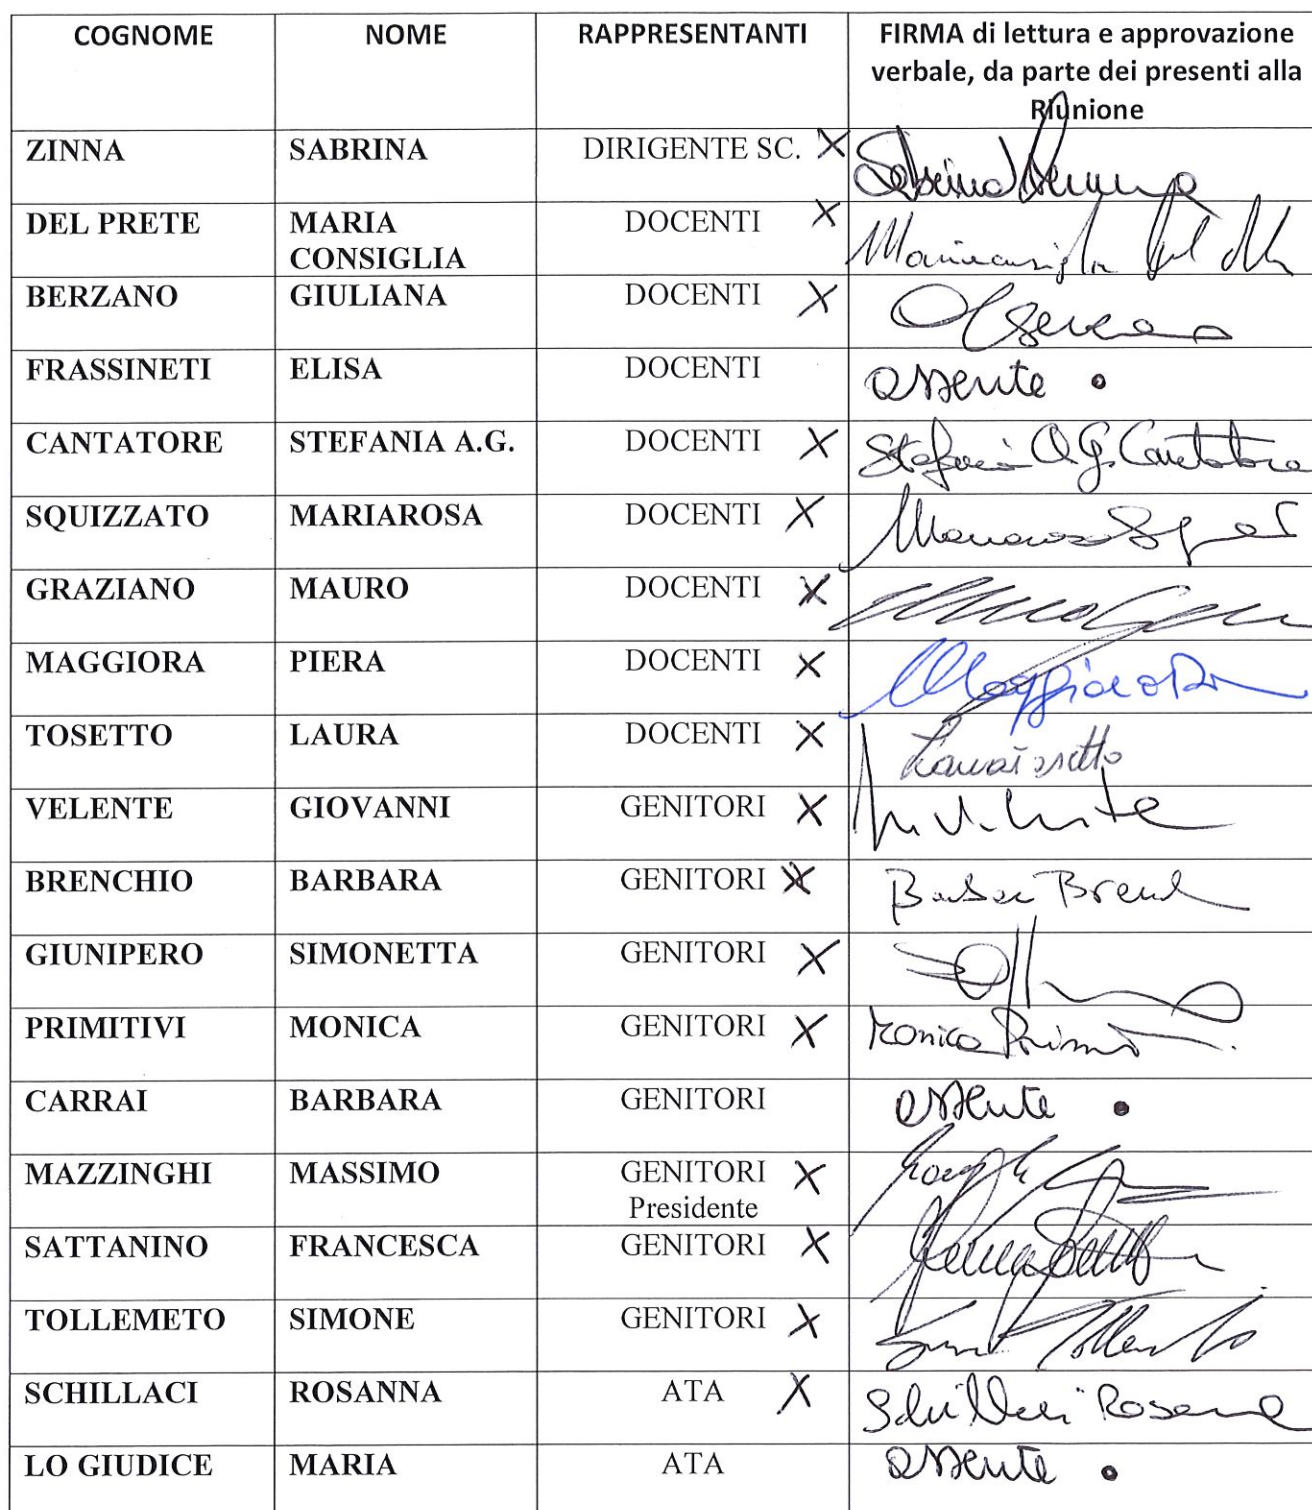 COGNOME NOME RAPPRESENTANTI FIRMA di lettura e approvazione
verbale, da parte dei presenti alla
Riunione
ZINNA SABRINA DIRIGENTE SC. X Sabrina Zinna
DEL PRETE MARIA DOCENTI X
CONSIGLIA
BERZANO GIULIANA DOCENTI X
FRASSINETI ELISA DOCENTI assente
CANTATORE STEFANIA A.G. DOCENTI X Stefania A.G. Cantatore
SQUIZZATO MARIAROSA DOCENTI X Mariarosa
GRAZIANO MAURO DOCENTI X
MAGGIORA PIERA DOCENTI X Maggiora
TOSETTO LAURA DOCENTI X Laura Tosetto
VELENTE GIOVANNI GENITORI X
BRENCHIO BARBARA GENITORI X
GIUNIPERO SIMONETTA GENITORI X
PRIMITIVI MONICA GENITORI X Monica
CARRAI BARBARA GENITORI assente
MAZZINGHI MASSIMO GENITORI X
Presidente
SATTANINO FRANCESCA GENITORI X
TOLLEMETO SIMONE GENITORI X
SCHILLACI ROSANNA ATA X Schillaci Rosanna
LO GIUDICE MARIA ATA assente